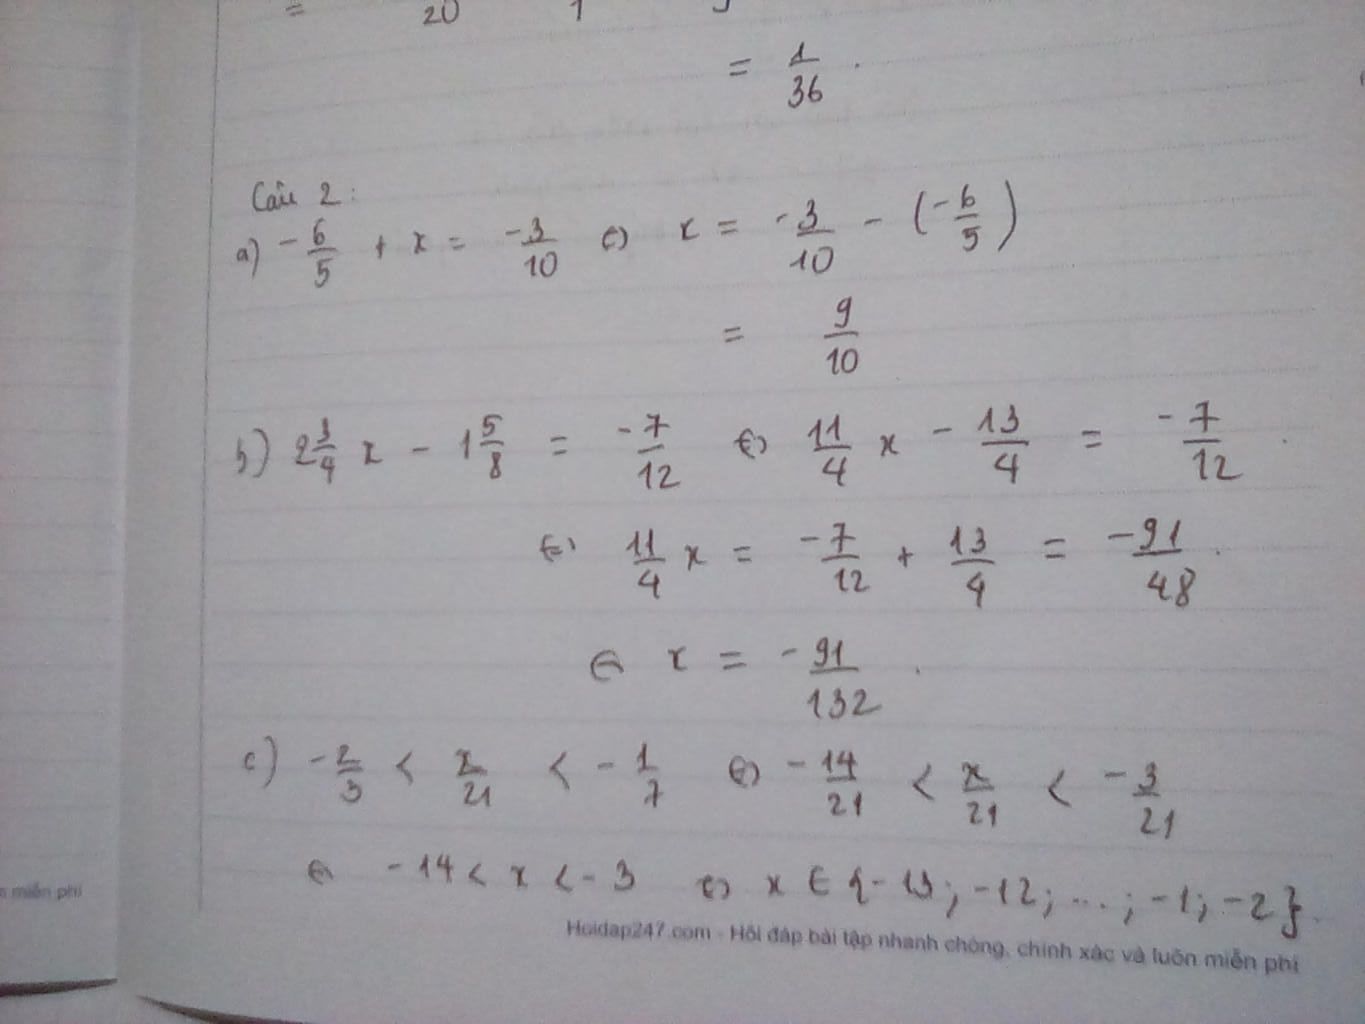 = 20 1
= 1/36 .
Câu 2:
a) -6/5 + x = -3/10 <=> x = -3/10 - (-6/5)
= 9/10
b) 2 3/4 x - 1 5/8 = -7/12 <=> 11/4 x - 13/4 = -7/12 .
<=> 11/4 x = -7/12 + 13/4 = -91/48 .
<=> x = -91/132 .
c) -2/3 < x/21 < -1/7 <=> -14/21 < x/21 < -3/21
<=> -14 < x < -3 <=> x ∈ {-13; -12; ...; -1; -2}.
miễn phí
Hoidap247.com - Hỏi đáp bài tập nhanh chóng, chính xác và luôn miễn phí